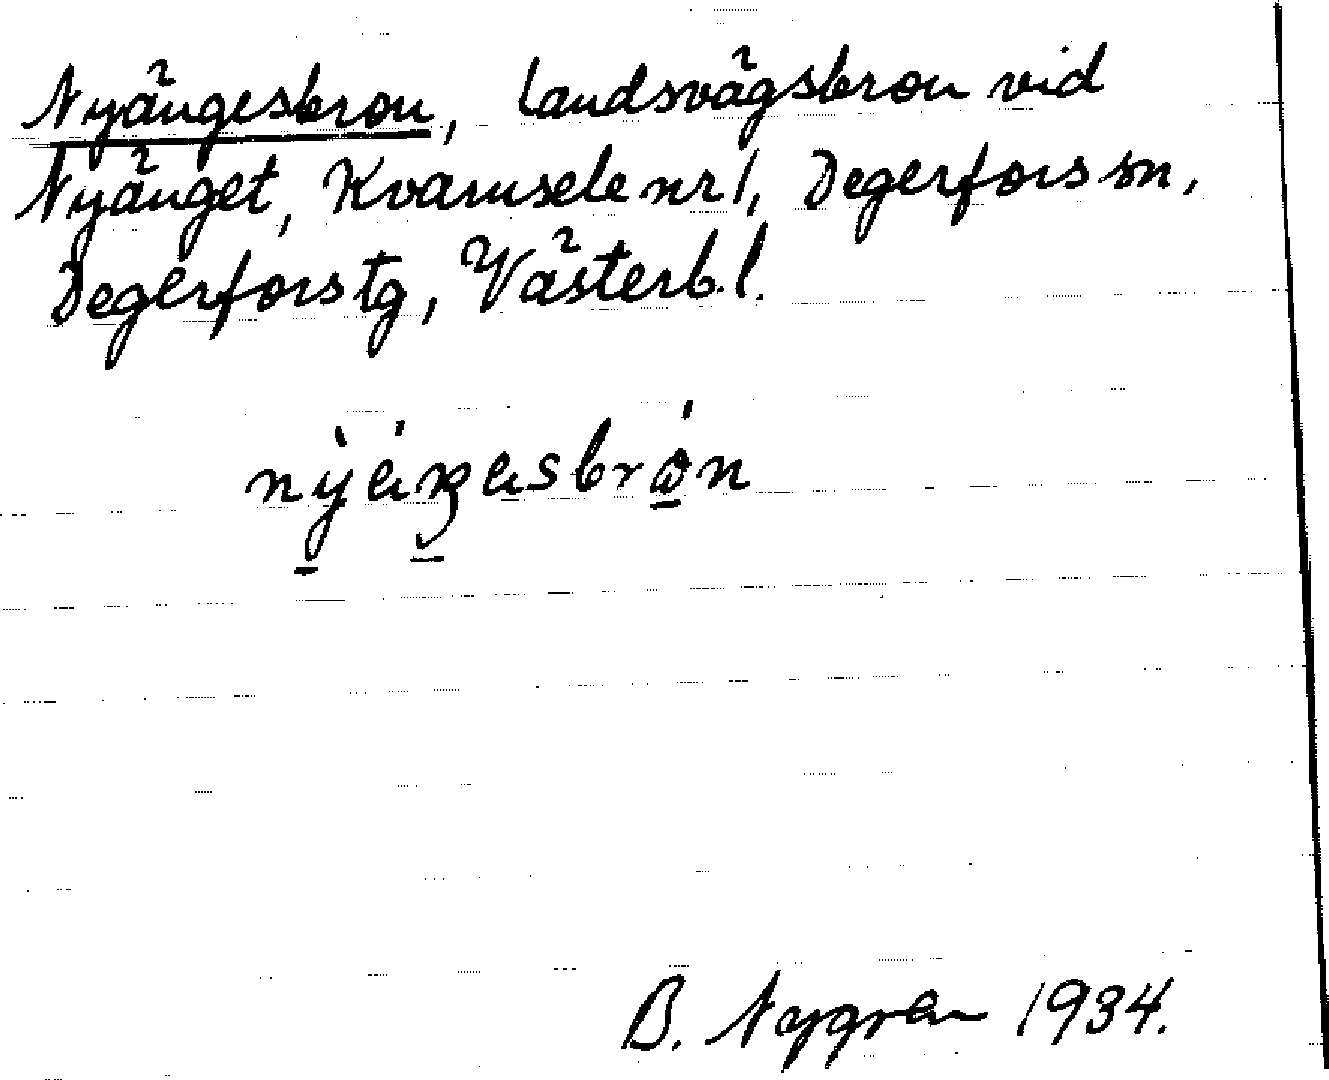 Nyängesbron, landsvägsbron vid
Nyänget, Kvarnsele nr 1, Degerfors sn,
Degerfors tg, Västerb. l.
B. Nygren 1934.